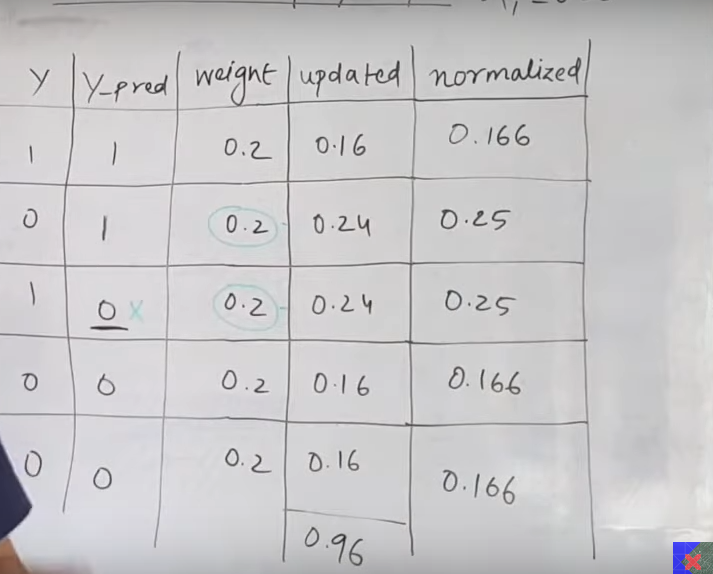 Y Y-pred weight updated normalized
1 1 0.2 0.16 0.166
0 1 0.2 0.24 0.25
1 0 x 0.2 0.24 0.25
0 0 0.2 0.16 0.166
0 0 0.2 0.16 0.166
0.96